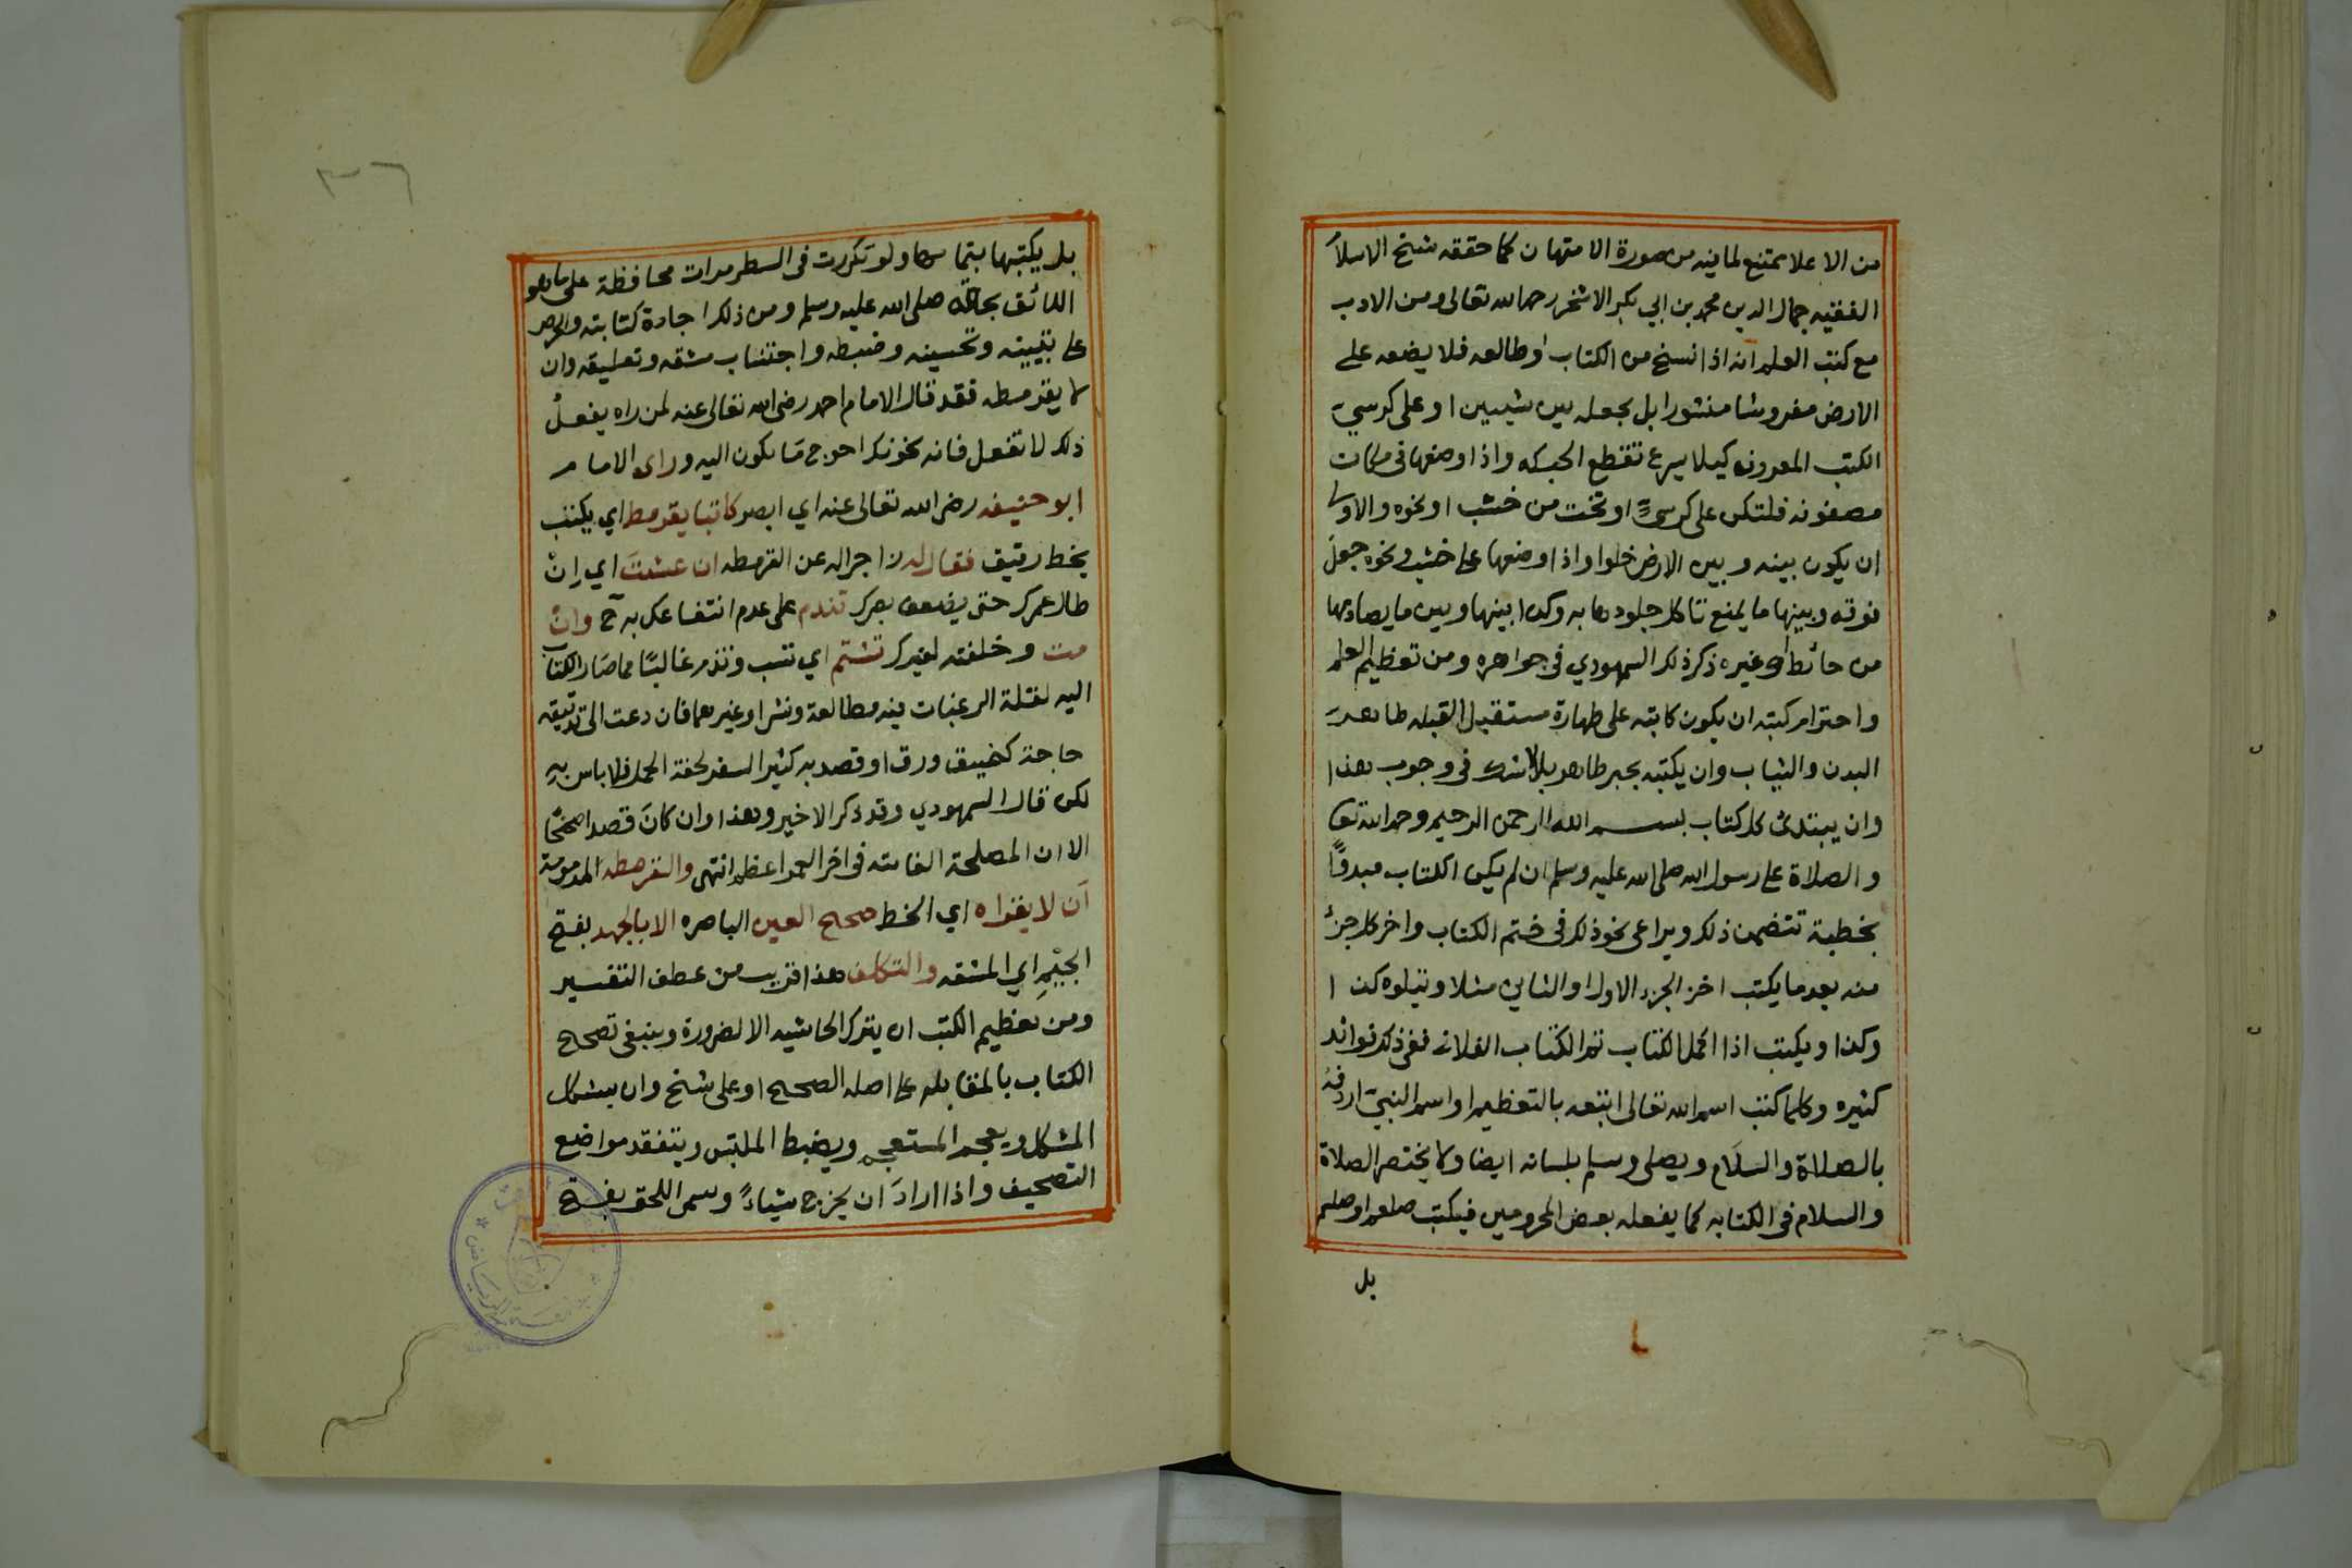 من الاعلا يمتنع لما فيه من صورة الامتهان كما حققه شيخ الاسلام
الفقيه جمال الدين محمد بن ابي بكر الاشخر رحمه الله تعالى ومن الادب
مع كتب العلم انه اذا نسخ من الكتاب او طالعه فلا يضعه على
الارض مفروشا منشورا بل يجعله بين شيبين او على كرسي
الكتب المعروف كيلا يسرع تقطع الحبكه واذا وضعها في مكان
مصفوفه فلتكن على كرسي او تخت من خشب او نحوه والاولى
ان يكون بينه وبين الارض خلوا واذا وضعها على خشب ونحوه جعل
فوقه وبينها ما يمنع تاكل جلودها به وكذا بينها وبين ما يصادمها
من حائط او غيره ذكر ذلك السمهودي في جواهره ومن تعظيم العلم
واحترام كتبه ان يكون كاتبه على طهارة مستقبل القبله طاهر
البدن والثياب وان يكتبه بحبر طاهر بلا شك في وجوب هذا
وان يبتدئ كل كتاب بسم الله الرحمن الرحيم وحمد الله تعا
والصلاة على رسول الله صلى الله عليه وسلم ان لم يكن الكتاب مبدوًا
بخطبة تتضمن ذلك ويراعى نحو ذلك في ختم الكتاب واخر كل جزء
منه بعد ما يكتب اخر الجزء الاول او الثاني مثلا ويتلوه كذا
وكذا ويكتب اذا اكمل الكتاب تم الكتاب الفلاني ففي ذلك فوائد
كثيره وكلما كتب اسم الله تعالى اتبعه بالتعظيم او اسم النبي اردفه
بالصلاة والسلام ويصلي ويسلم بلسانه ايضا ولا يختصر الصلاة
والسلام في الكتابه كما يفعله بعض المحرومين فيكتب صلعم او صلم
بل
٣٦
بل يكتبها بتمامها ولو تكررت في السطر مرات محافظة على ما هو
اللائق بجلاله صلى الله عليه وسلم ومن ذلك اجادة كتابته والحرص
على تبيينه وتحسينه وضبطه واجتناب مشقه وتعليقه وان
لا يقرمطه فقد قال الامام احمد رضي الله تعالى عنه لمن راه يفعل
ذلك لا تفعل فانه يخونك احوج ما يكون اليه وراى الامام
ابو حنيفه رضي الله تعالى عنه اي ابصر كاتبا يقرمط اي يكتب
بخط رقيق فقال له زاجرا له عن القرمطه ان عشت اي ان
طال عمرك حتى يضعف بصرك تندم على عدم انتفاعك به ح وان
مت وخلفته لغيرك تشتم اي تسب وتذم غالبا مما صار الكتاب
اليه لقلة الرغبات فيه مطالعة ونشرا وغيرهما فان دعت الى تدقيقه
حاجة كضيق ورق او قصد به كثير السفر لخفة الحمل فلا باس به
لكن قال السمهودي وقد ذكر الاخير وهذا وان كان قصدا صحيحًا
الا ان المصلحة الفائته في اخر العمر اعظم انتهى والقرمطه المذمومة
ان لا يقراه اي الخط صحيح العين الباصره الا بالجهد بفتح
الجيم اي المشقه والتكلف هذا قريب من عطف التفسير
ومن تعظيم الكتب ان يترك الحاشيه الا لضرورة وينبغي تصحيح
الكتاب بالمقابله على اصله الصحيح او على شيخ وان يشكل
المشكل ويعجم المستعجم ويضبط الملتبس ويتفقد مواضع
التصحيف واذا اراد ان يخرج شيئا ويسمى اللحق بفتح